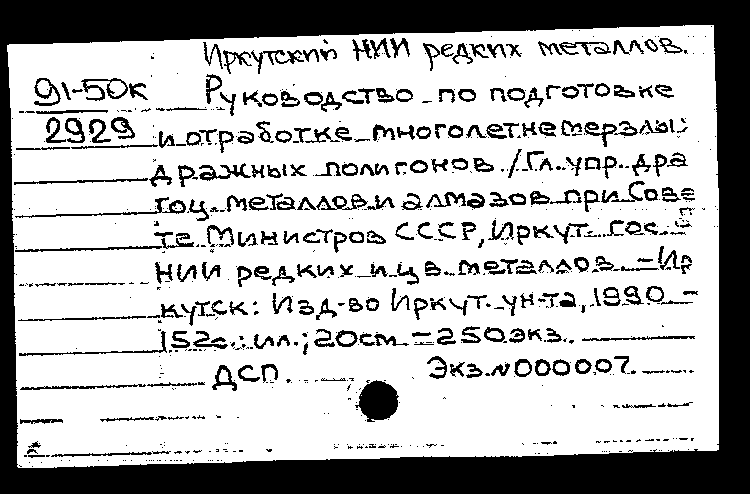 Иркутский НИИ редких металлов.
91-50к Руководство по подготовке
2929 и отработке многолетнемерзлы
дражных полигонов / Гл. упр. дра
гоц. металлов и алмазов при Сове
те Министров СССР, Иркут. гос.
НИИ редких и цв. металлов. – Ир
кутск: Изд-во Иркут. ун-та, 1990. –
152с.: ил.; 20см – 250экз.
ДСП. Экз.№000007.